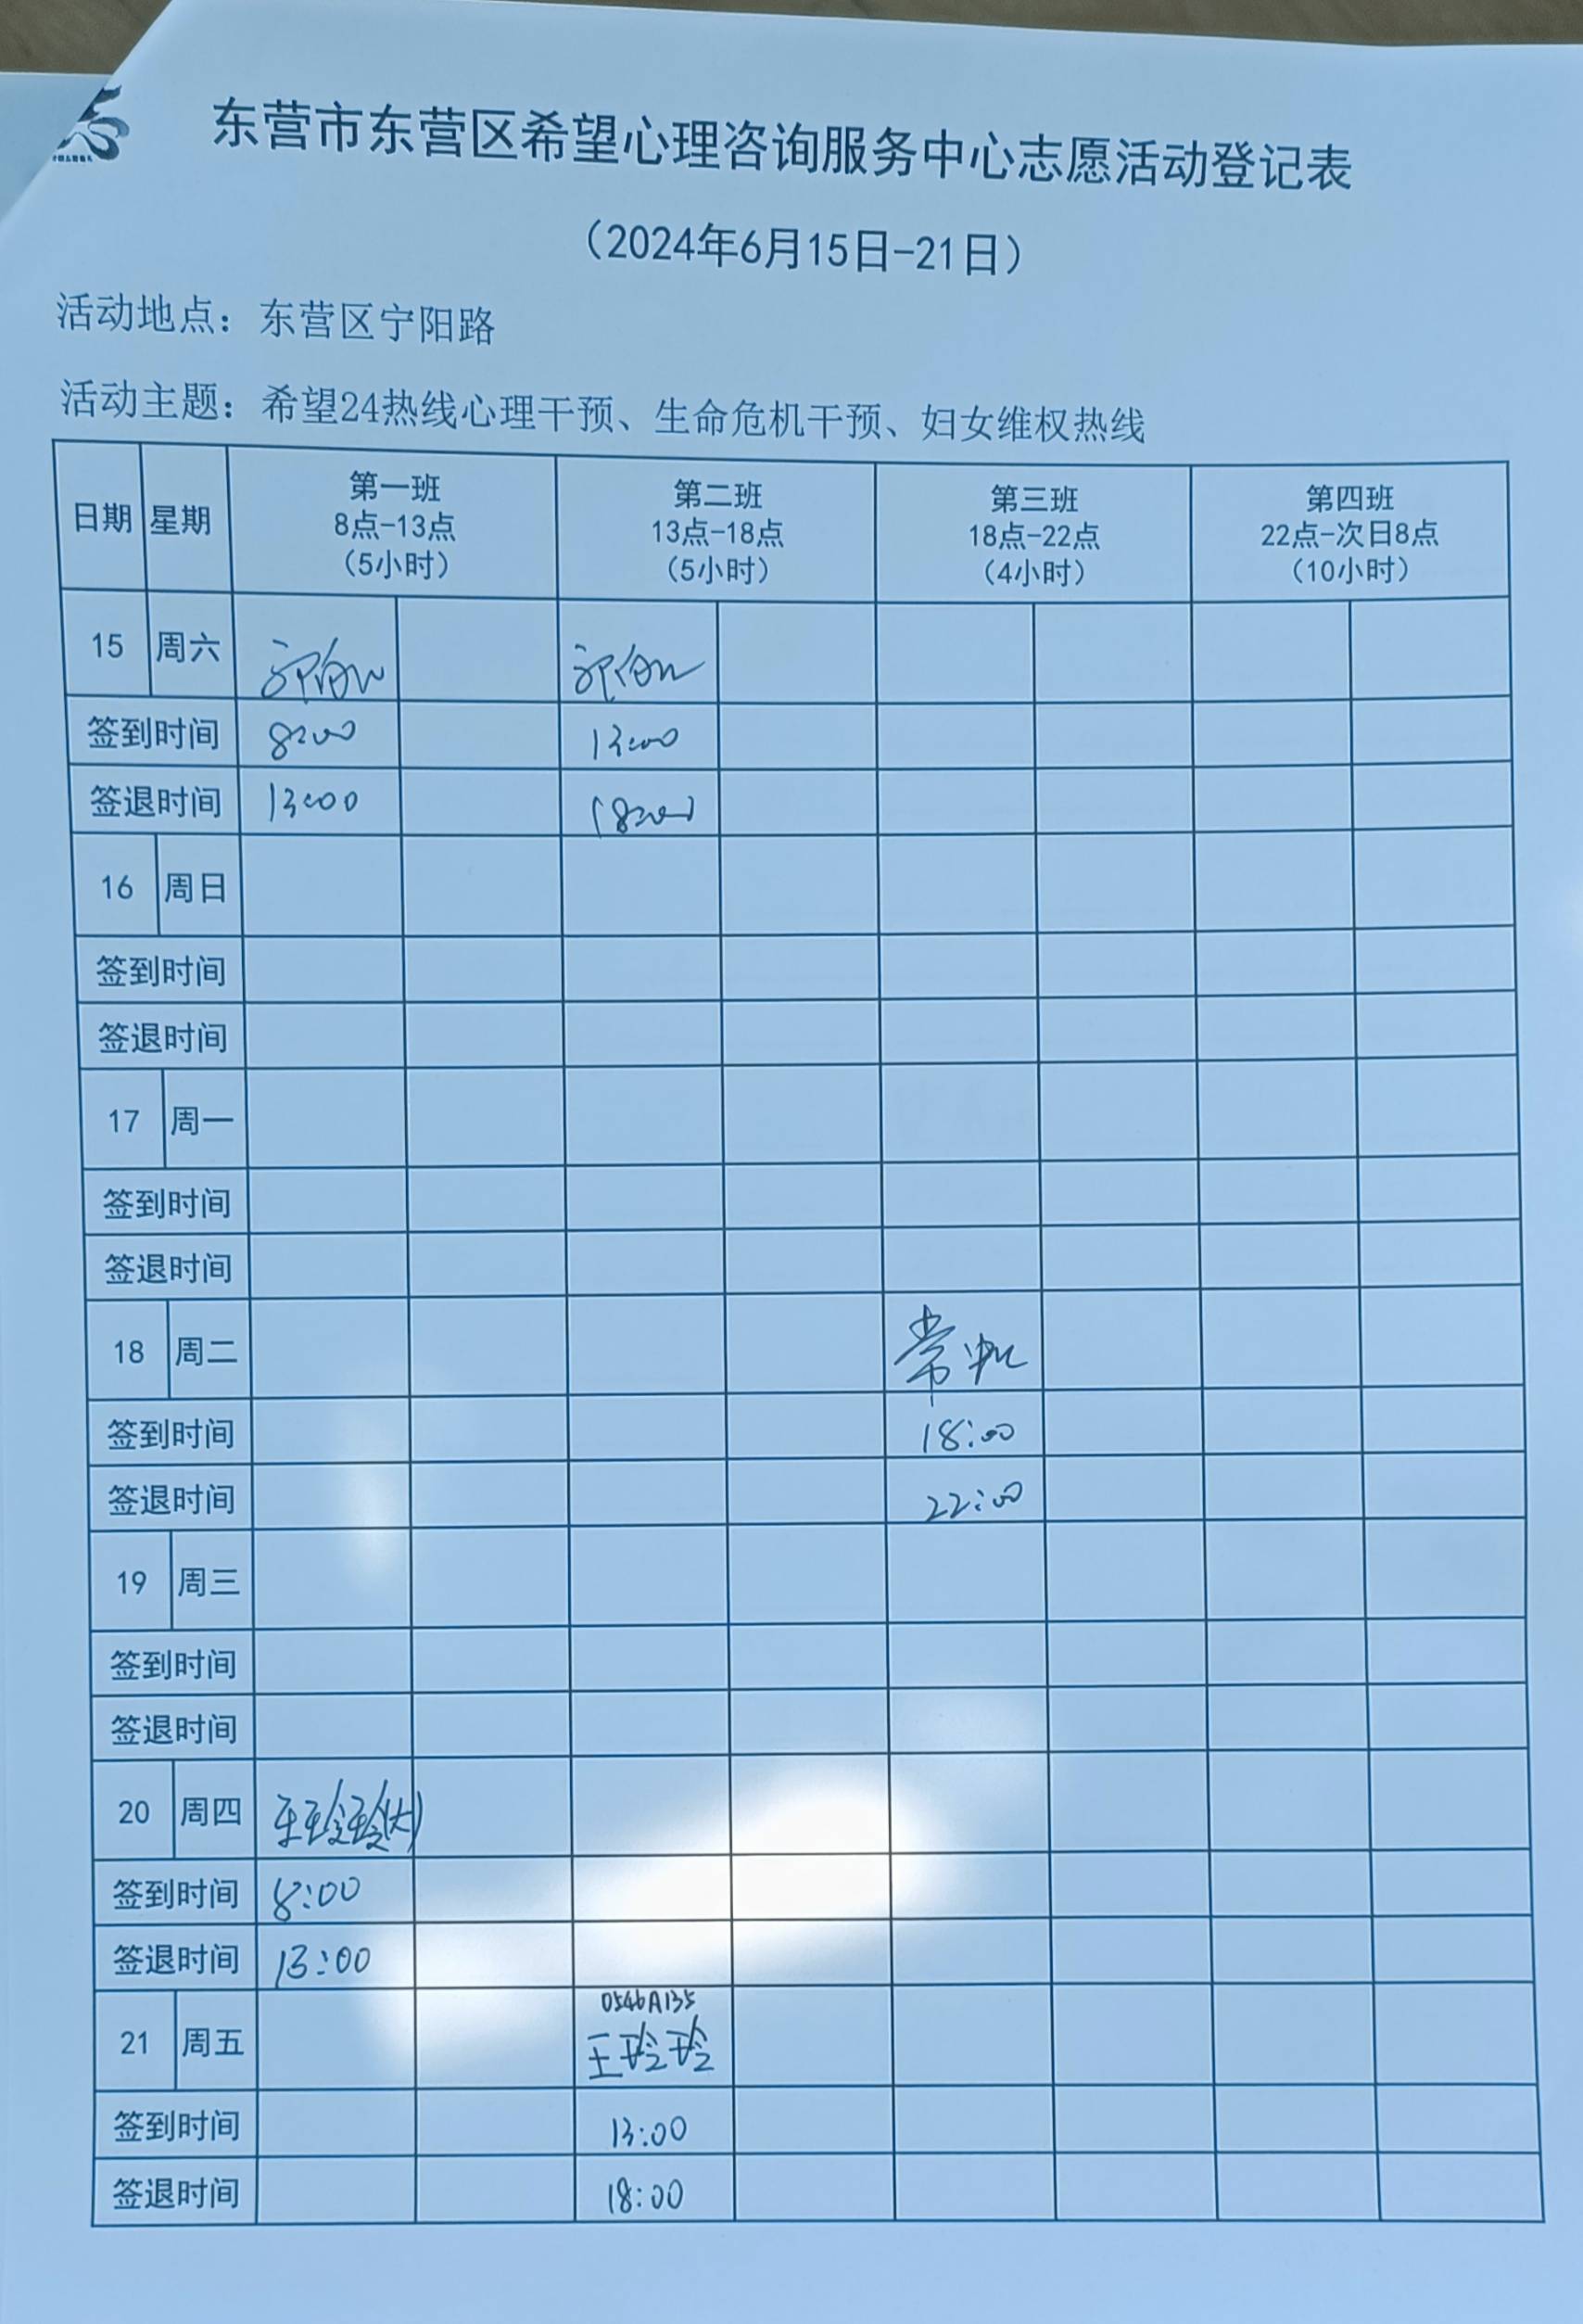 东营市东营区希望心理咨询服务中心志愿活动登记表
（2024年6月15日-21日）
活动地点：东营区宁阳路
活动主题：希望24热线心理干预、生命危机干预、妇女维权热线
日期 星期 第一班 8点-13点 （5小时） 第二班 13点-18点 （5小时） 第三班 18点-22点 （4小时） 第四班 22点-次日8点 （10小时）
15 周六
签到时间 8:00 13:00
签退时间 13:00 18:00
16 周日
签到时间
签退时间
17 周一
签到时间
签退时间
18 周二 常
签到时间 18:00
签退时间 22:00
19 周三
签到时间
签退时间
20 周四 王玲玲(大)
签到时间 8:00
签退时间 13:00
21 周五 0546A135 王玲玲
签到时间 13:00
签退时间 18:00